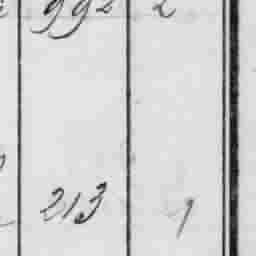 992 2
213 1